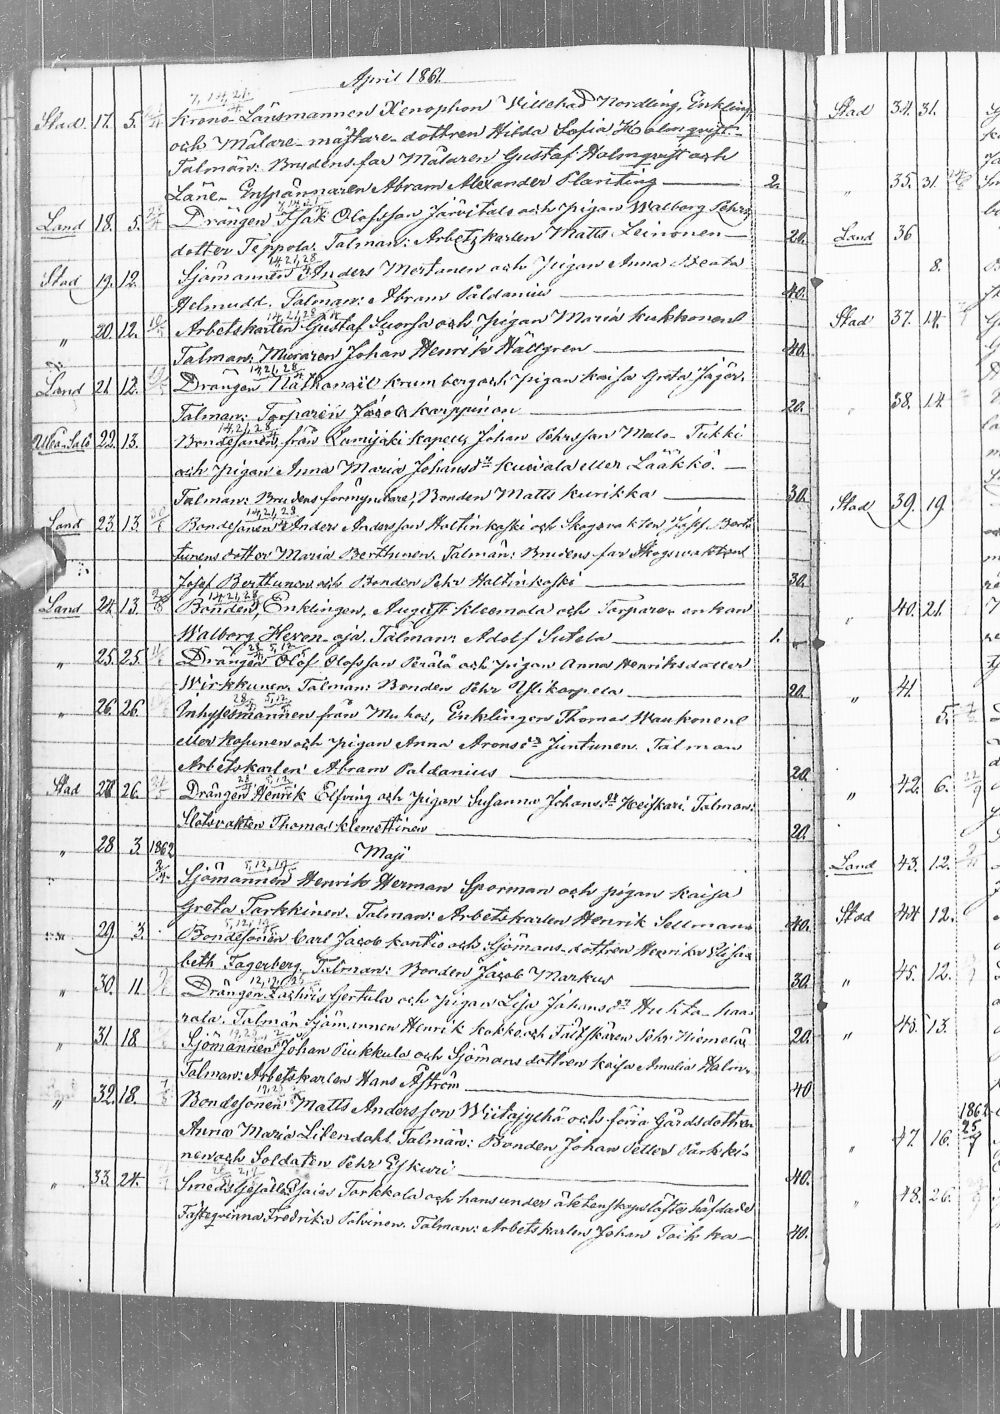 April 1861.
7, 14, 21.
Stad. 17. 5. Krono-Länsmannen Xenophon Willehad Nordling, Enkling
och Målare-mästare-dottren Hilda Sofia Holmqvist.
Talmän: Brudens far Målaren Gustaf Holmqvist och
Läne- Enspännaren Abram Alexander Planting — 2.
Land 18. 5. Drängen Isak Olofsson Järvitalo och Pigan Walborg Pehrs
dotter Teppola. Talman: Arbetskarlen Matts Leinonen — 20.
14, 21, 28
Stad 19. 12. Sjömannen Anders Mertanen och Pigan Anna Beata
Helmudd. Talman: Abram Paldanius — 40.
14, 21, 28
" 20. 12. Arbetskarlen Gustaf Suorsa och Pigan Maria Kukkonen
Talman: Muraren Johan Henrik Hällgren — 40.
14, 21, 28
Land 21. 12. Drängen Nathanael Krumberg och Pigan Kaisa Greta Jäger.
Talman: Torparen Jacob Karppinen — 20.
14, 21, 28
22. 13. Bondesonen från Lumijoki Kapell, Johan Pehrsson Malo-Tikki
och Pigan Anna Maria Johansdr Kusiala eller Lääkkö. —
Talman: Brudens förmyndare, Bonden Matts Kurikka — 30.
14, 21, 28
Land 23. 13. Bondesonen Anders Andersson Haltinkoski och Skogsvakten Josef Bert
tunens dotter Maria Berthunen. Talmän: Brudens far Skogswakten
Josef Berttunen och Bonden Pehr Haltinkoski — 30.
14, 21, 28
Land 24. 13. Bonden, Enklingen, August Kleemola och Torpare-enkan
Walborg Heven-oja. Talman: Adolf Sutela — 1.
28 5, 12
" 25. 25. Drängen Olof Olofsson Perälä och Pigan Anna Henriksdotter
Wirkkunen. Talman: Bonden Pehr Ylikorpela — 20.
28 5, 12
" 26. 26. Inhysesmannen från Muhos, Enklingen Thomas Haukonen
eller Kosunen och Pigan Anna Aronsdr Juntunen. Talman
Arbetskarlen Abram Paldanius — 20.
28 5, 12
Stad 27. 26. Drängen Henrik Elfving och Pigan Susanna Johansdr Heiskari. Talman:
Slotsvakten Thomas Klemettinen — 20.
" 28 3. 1862 Maji
5, 12, 19
Sjömannen Henrik Herman Sporman och Pigan Kaisa
Greta Tarkkinen. Talman: Arbetskarlen Henrik Sellman — 40.
5, 12, 19
29. 3. Bondesonen Carl Jacob Kantio och Sjömans-dottren Henrika Elisa-
beth Fagerberg. Talman: Bonden Jacob Markus — 30.
" 30. 11. Drängen Zachris Gertula och Pigan Lisa Johansdr Huhta-haa-
rala. Talmän Sjömannen Henrik Kokko och Fältskären Pehr Niemelä — 20.
" 31. 18. Sjömannen Johan Pukkula och Sjömansdottren Kaisa Amalia Halin.
Talman: Arbetskarlen Hans Åström — 40
" 32. 18. Bondesonen Matts Andersson Wiitajylhä och förra Gårdsdottren
Anna Maria Liljendahl. Talmän: Bonden Johan Petter Parkki-
nen och Soldaten Pehr Eskuri — 40.
" 33. 24. Smedsgesällen Esaias Torkkola och hans under äktenskapslöfte häfdade
Fästeqvinna Fredrika Polvinen. Talman: Arbetskarlen Johan Toikka — 40.
Stad 34. 31.
" 35. 31.
Land 36
8.
Stad 37. 14.
38. 14.
Stad 39. 19.
" 40. 21.
" 41.
5.
" 42. 6.
Land 43. 12.
Stad 44. 12.
" 45. 12.
" 45. 13.
1862
25
9
" 47. 16.
" 48. 26.